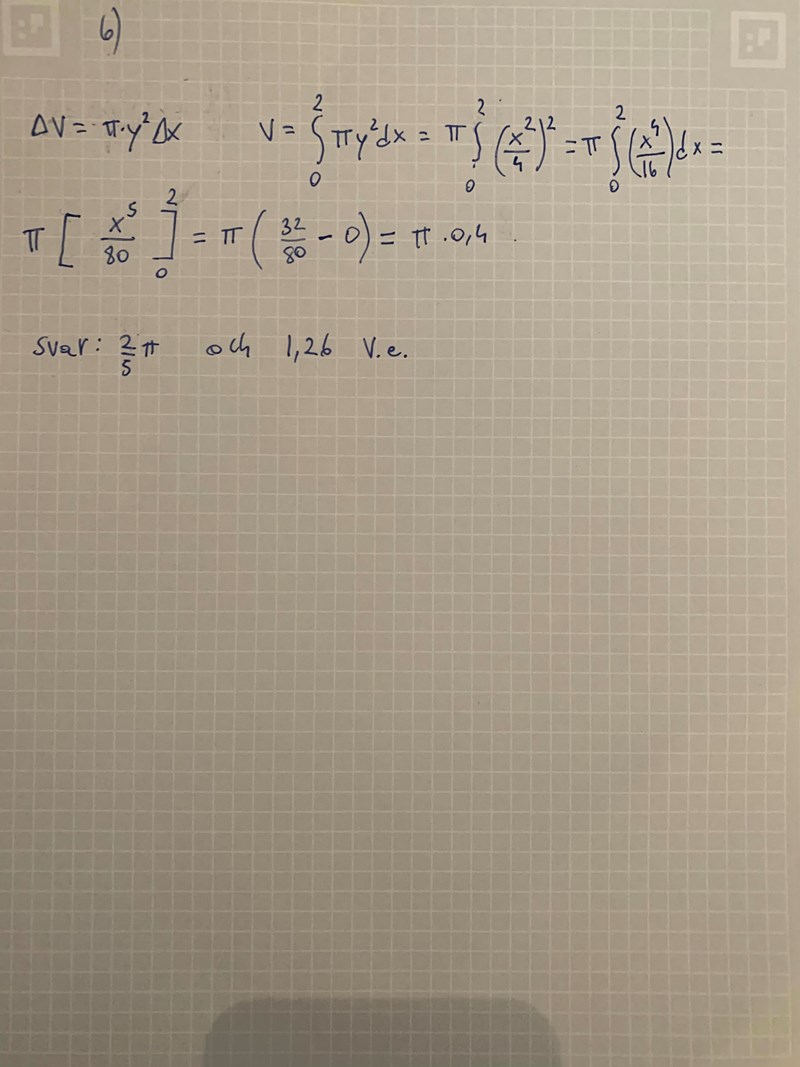 6)
ΔV = π·y² Δx V = ∫₀² πy²dx = π ∫₀² (x²/4)² = π ∫₀² (x⁴/16) dx =
π [ x⁵/80 ]₀² = π ( 32/80 - 0) = π · 0,4
Svar: 2/5 π och 1,26 V.e.